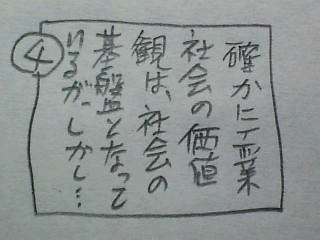 ④
確かに工業
社会の価値
観は、社会の
基盤となって
いるが、しかし…